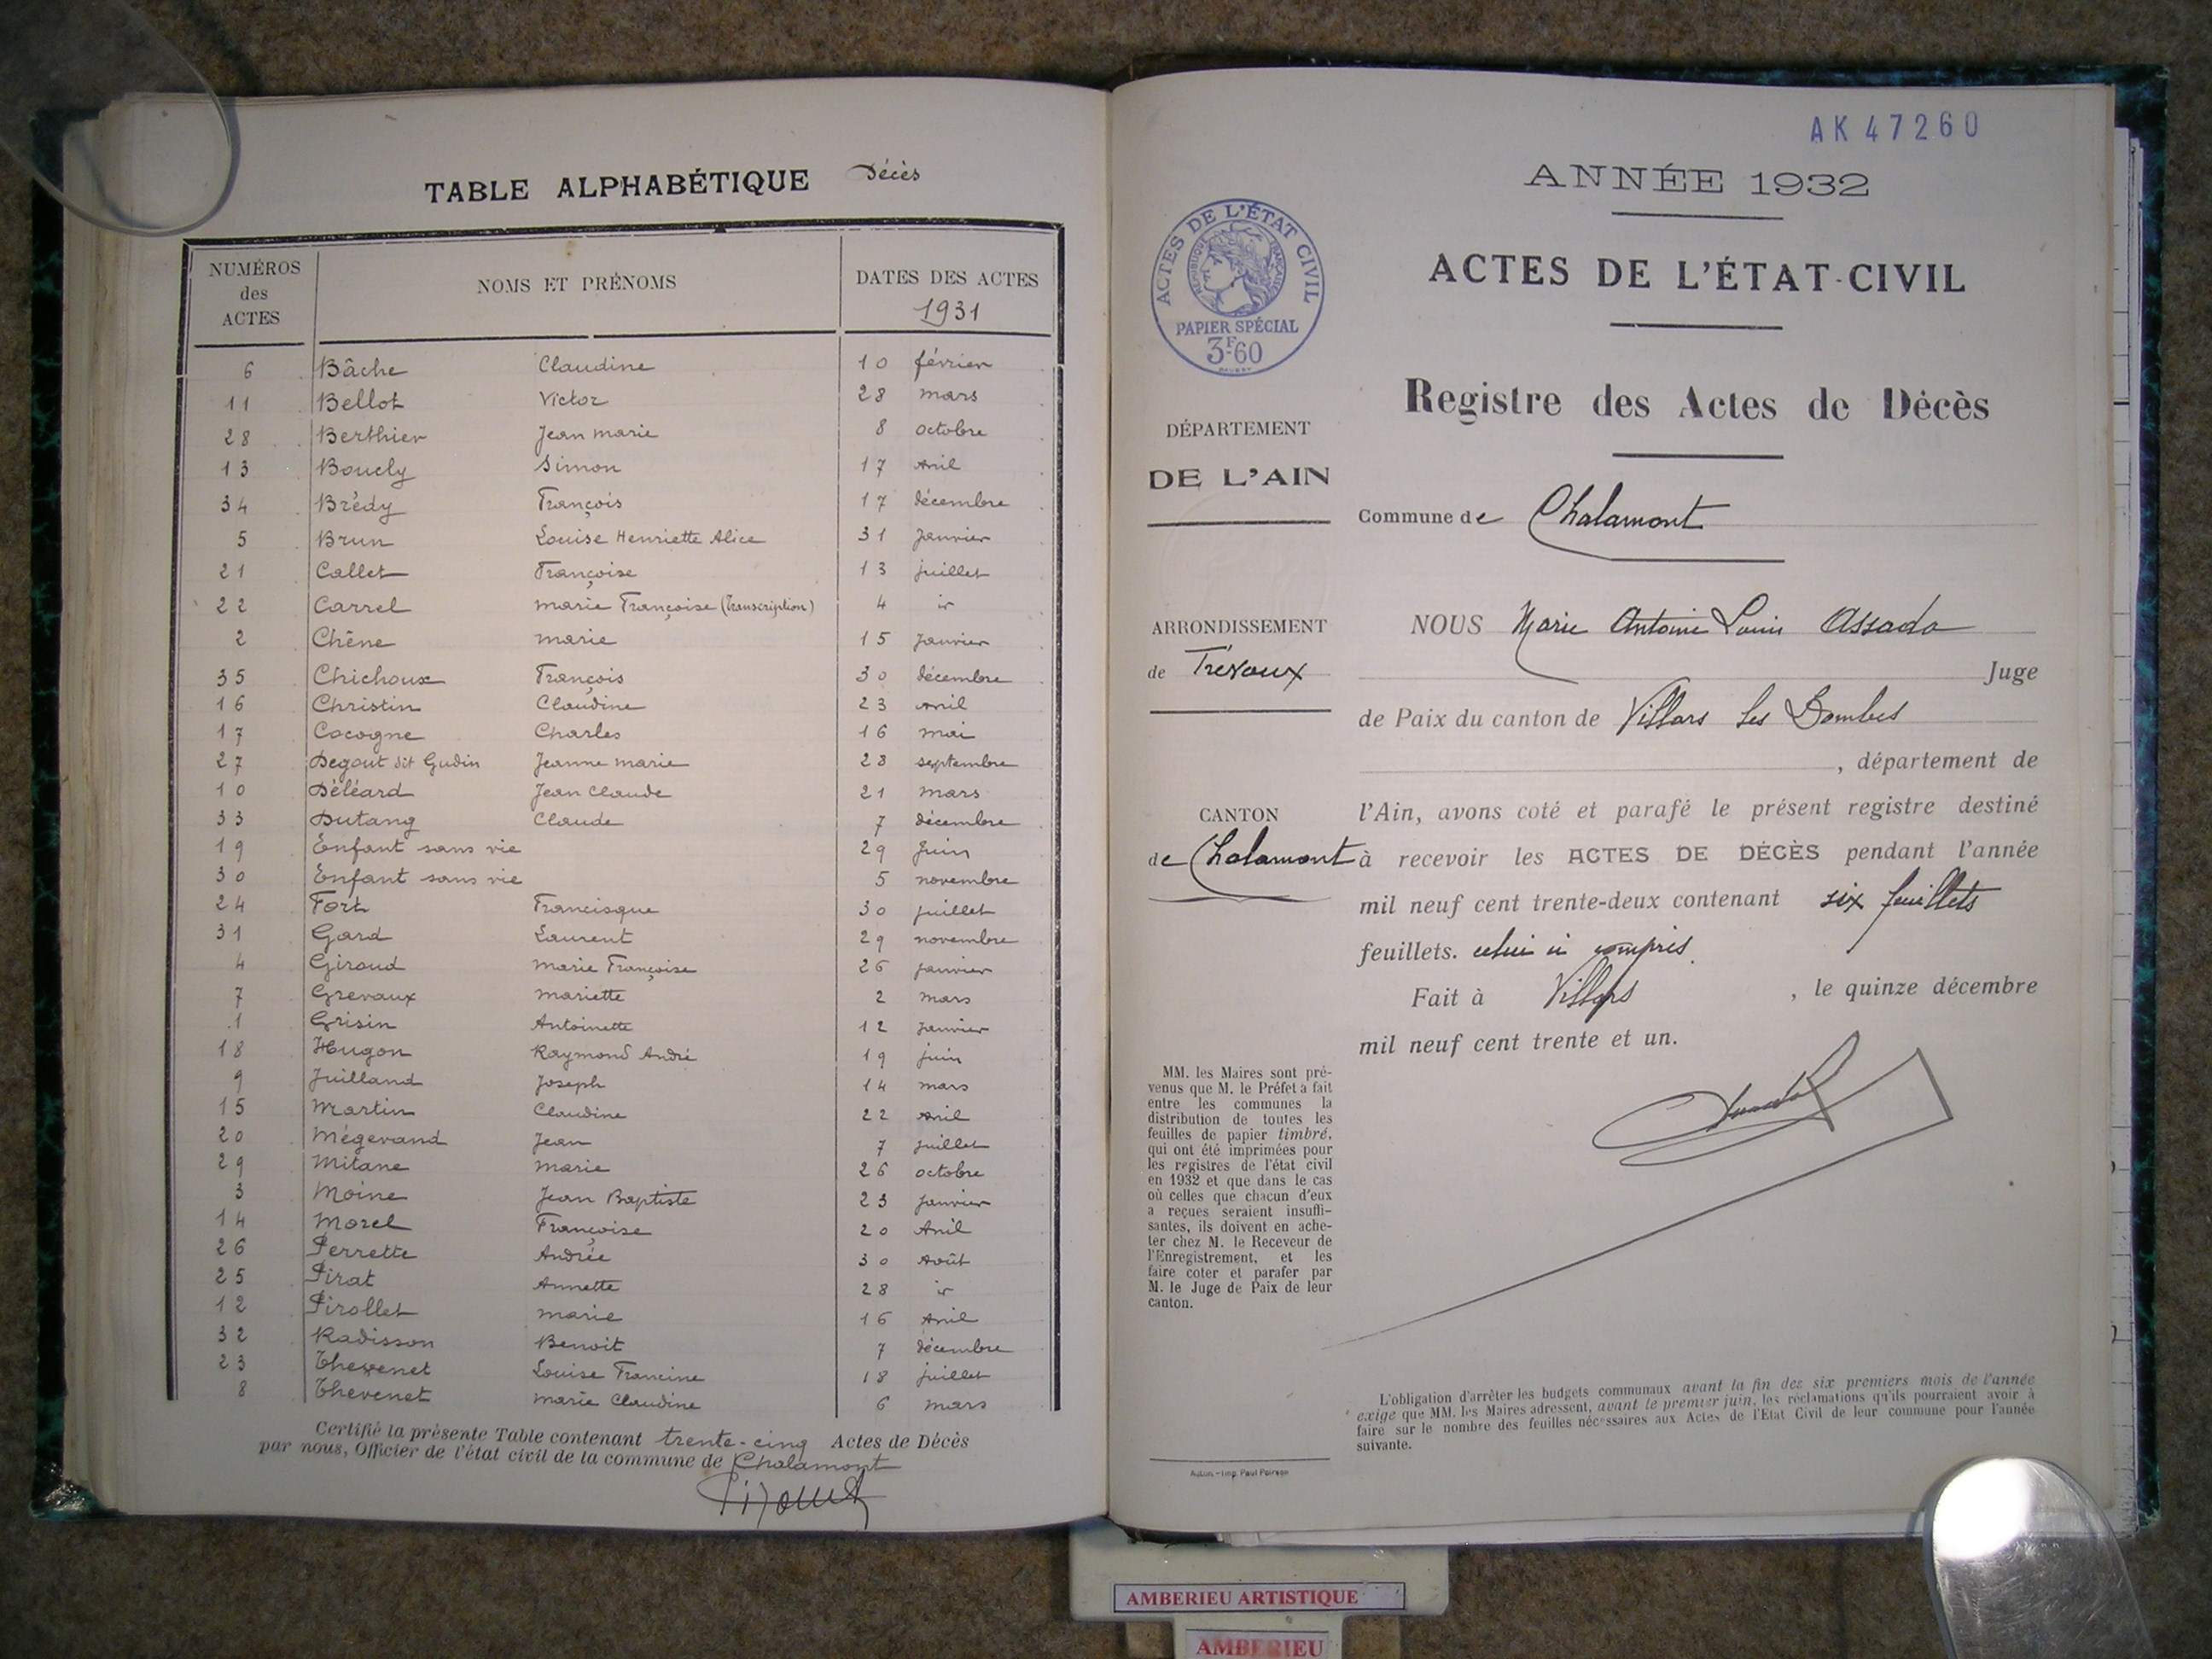 TABLE ALPHABÉTIQUE Décès
NUMÉROS des ACTES
NOMS ET PRÉNOMS
DATES DES ACTES
1931
6 Bâche Claudine 10 février
11 Bellot Victor 28 mars
28 Berthier Jean marie 8 octobre
13 Boucly Simon 17 Avril
34 Brédy François 17 décembre
5 Brun Louise Henriette Alice 31 Janvier
21 Callet Françoise 13 juillet
22 Carrel marie Françoise (Transcription) 4 id
2 Chêne marie 15 Janvier
35 Chichoux François 30 décembre
16 Christin Claudine 23 avril
17 Cocogne Charles 16 mai
27 Degout dit Gudin Jeanne marie 23 septembre
10 Déléard Jean Claude 21 mars
33 Dutang Claude 7 décembre
19 Enfant sans vie 29 Juin
30 Enfant sans vie 5 novembre
24 Fort Francisque 30 juillet
31 Gard Laurent 29 novembre
4 Giroud marie Françoise 26 janvier
7 Grevaux mariette 2 mars
1 Grisin Antoinette 12 janvier
18 Hugon Raymond André 19 juin
9 Juilland Joseph 14 mars
15 Martin Claudine 22 Avril
20 Mégevand Jean 7 juillet
29 Mitane marie 26 octobre
3 Moine Jean Baptiste 23 janvier
14 Morel Françoise 20 Avril
26 Perrette Andrée 30 Août
25 Pirat Annette 28 id
12 Pirollet marie 16 Avril
32 Radisson Benoit 7 décembre
23 Thevenet Louise Francine 18 juillet
8 Thevenet marie Claudine 6 mars
Certifié la présente Table contenant trente-cinq Actes de Décès
par nous, Officier de l'état civil de la commune de Chalamont
AK 47260
ANNÉE 1932
ACTES DE L'ÉTAT CIVIL
RÉPUBLIQUE FRANÇAISE
PAPIER SPÉCIAL
3F60
ACTES DE L'ÉTAT-CIVIL
Registre des Actes de Décès
DÉPARTEMENT
DE L'AIN
ARRONDISSEMENT
de Trévoux
CANTON
de Chalamont
Commune de Chalamont
NOUS Marie Antoine Louis Assada
Juge
de Paix du canton de Villars les Dombes
, département de
l'Ain, avons coté et parafé le présent registre destiné
à recevoir les ACTES DE DÉCÈS pendant l'année
mil neuf cent trente-deux contenant six feuillets
feuillets. celui ci compris.
Fait à Villars, le quinze décembre
mil neuf cent trente et un.
MM. les Maires sont pré-
venus que M. le Préfet à fait
entre les communes la
distribution de toutes les
feuilles de papier timbré,
qui ont été imprimées pour
les registres de l'état civil
en 1932 et que dans le cas
où celles que chacun d'eux
a reçues seraient insuffi-
santes, ils doivent en ache-
ter chez M. le Receveur de
l'Enregistrement, et les
faire coter et parafer par
M. le Juge de Paix de leur
canton.
L'obligation d'arrêter les budgets communaux avant la fin des six premiers mois de l'année
exige que MM. les Maires adressent, avant le premier juin, les réclamations qu'ils pourraient avoir à
faire sur le nombre des feuilles nécessaires aux Actes de l'Etat Civil de leur commune pour l'année
suivante.
Imp. Paul
AMBERIEU ARTISTIQUE
AMBERIEU